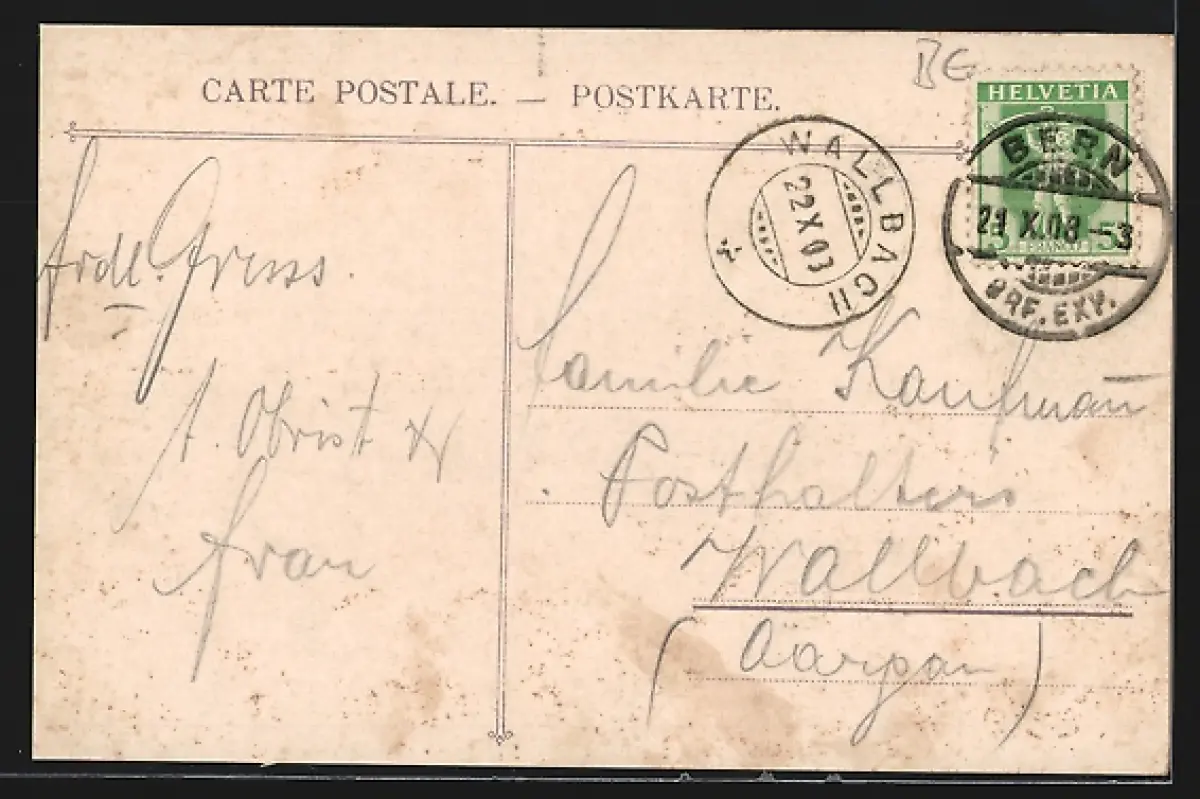 BG
CARTE POSTALE. — POSTKARTE.
HELVETIA
BERN
21.X.08.-3
BRF. EXP.
5 FRANCO 5
WALLBACH
22 X 03
Frdl. Gruss.
A. Obrist &
Frau
Familie Kaufman̄
Posthalters
Wallbach
(Aargau)